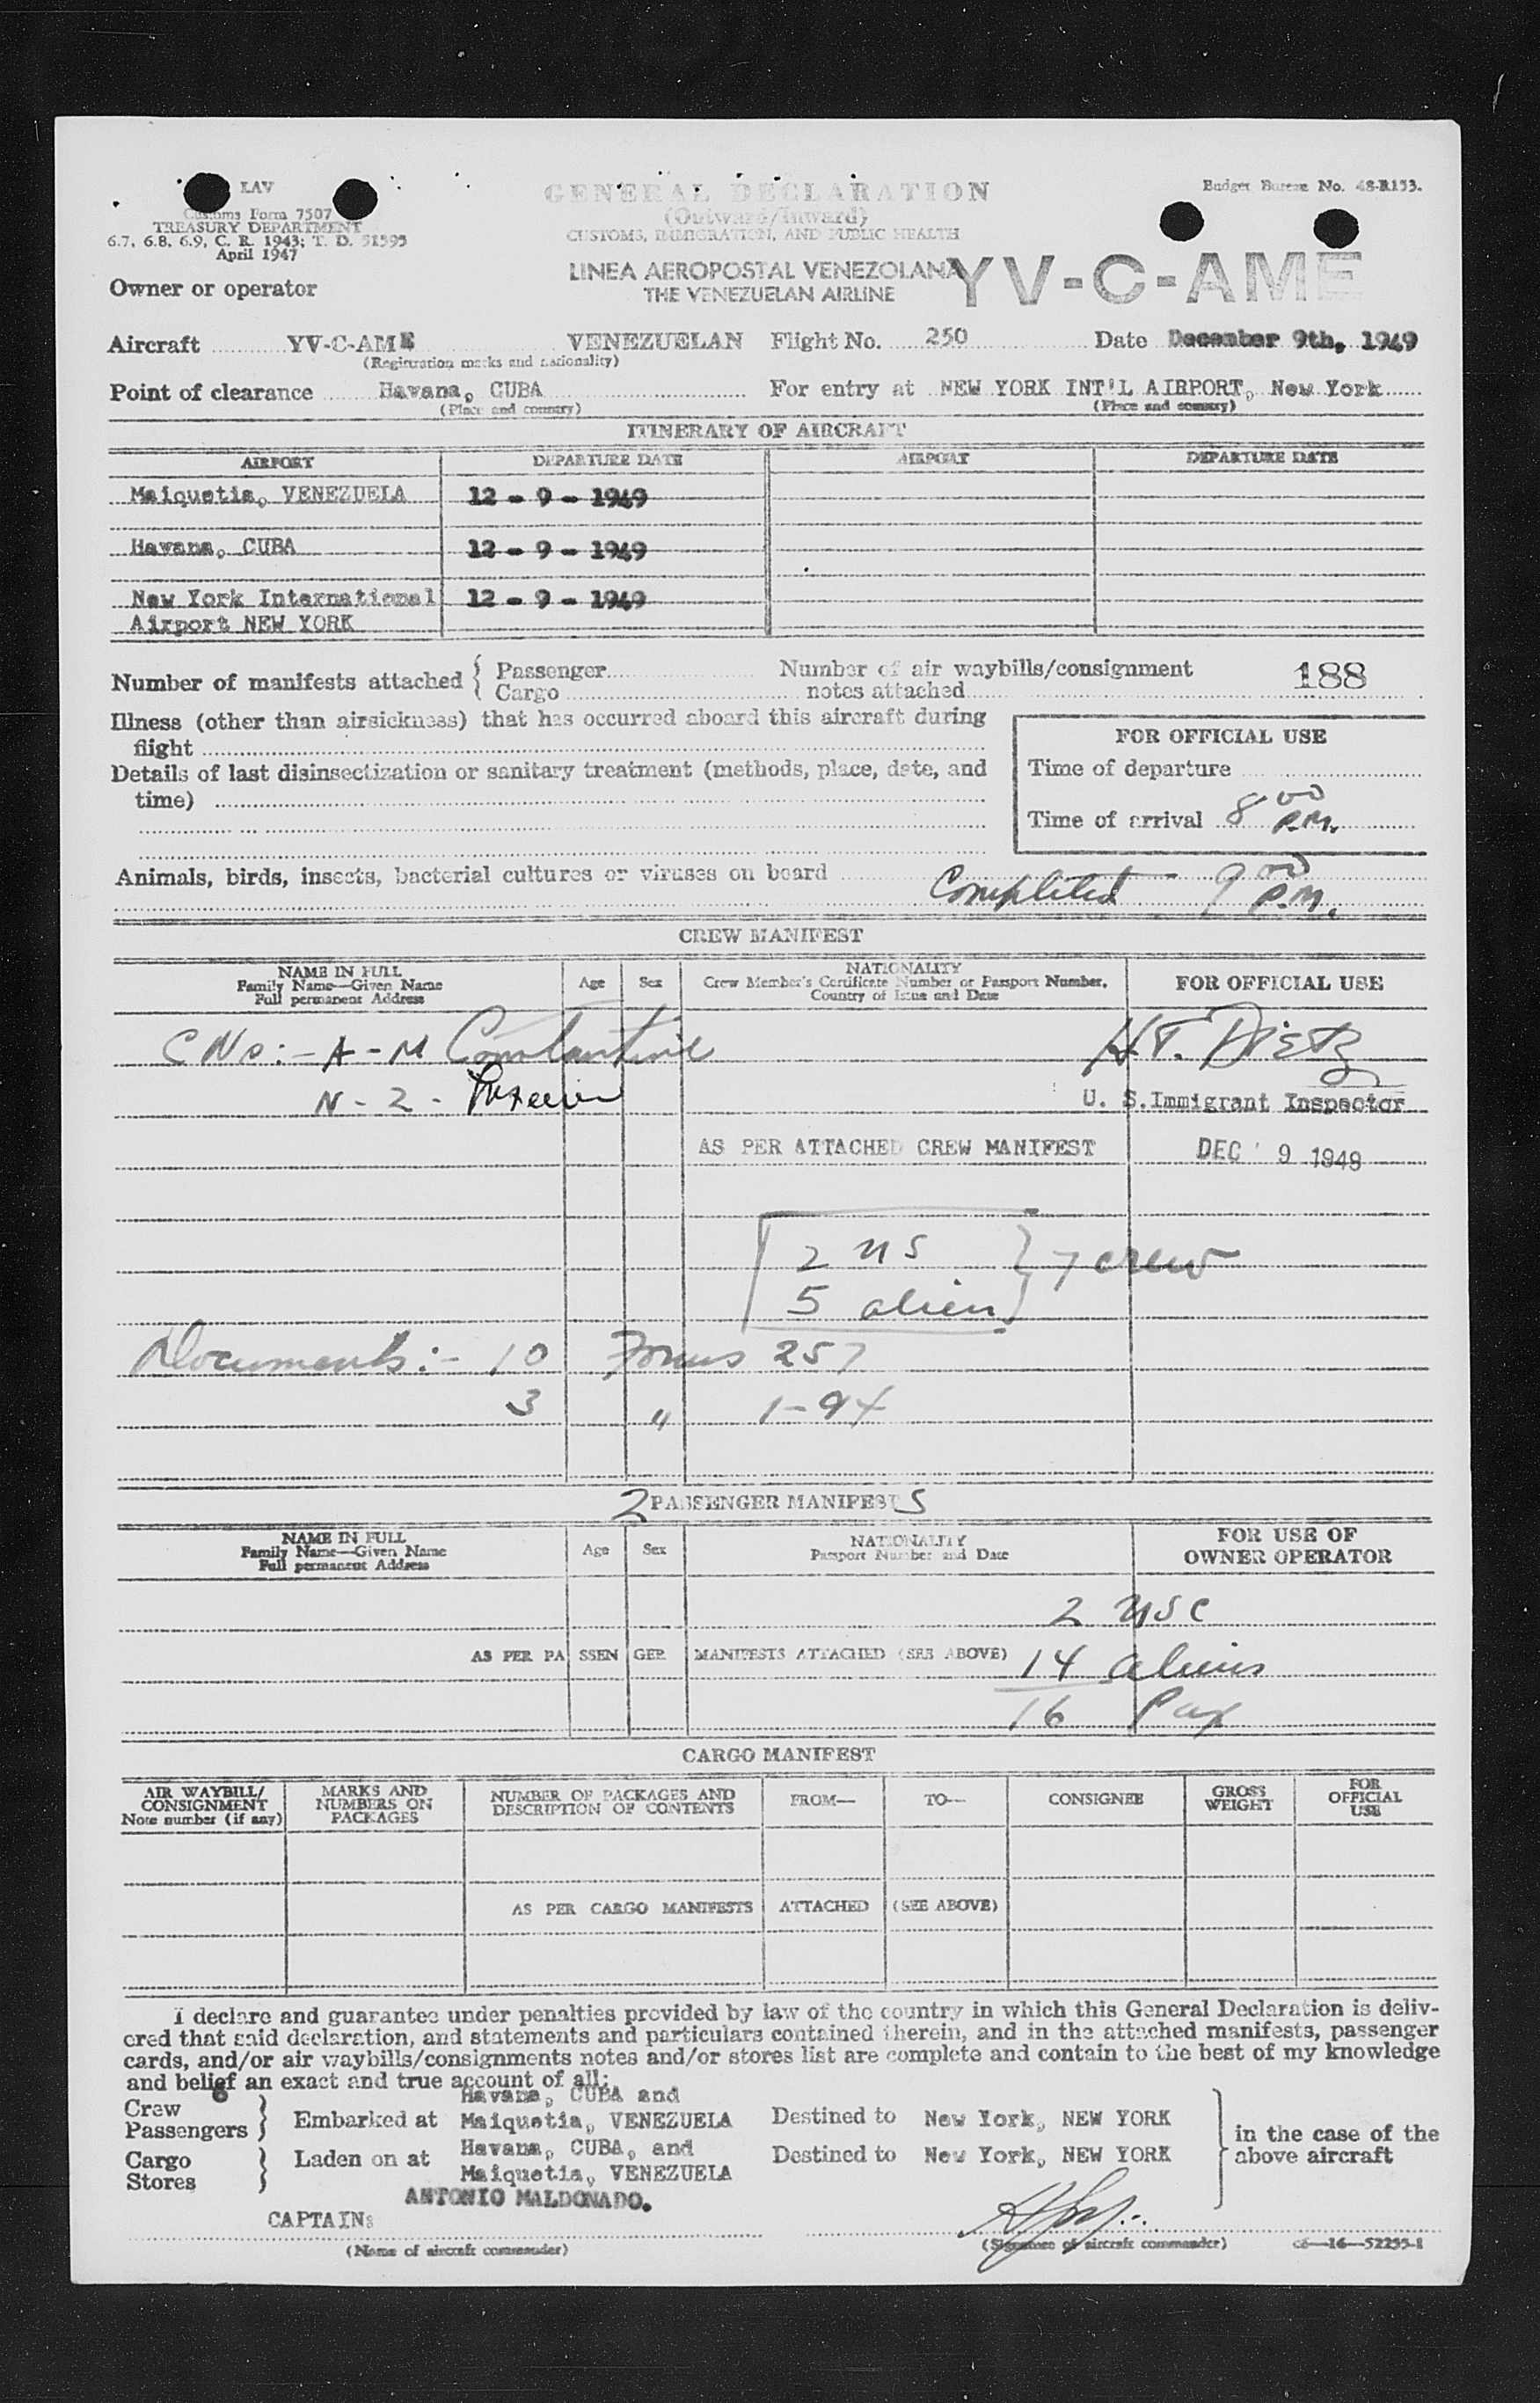 LAV
GENERAL DECLARATION
Budget Bureau No. 48-R153.
Customs Form 7507
TREASURY DEPARTMENT
6.7, 6.8, 6.9, C. R. 1943; T. D. 51595
April 1947
(Outward/Inward)
CUSTOMS, IMMIGRATION, AND PUBLIC HEALTH
LINEA AEROPOSTAL VENEZOLANA
THE VENEZUELAN AIRLINE
YV-C-AME
Owner or operator
Aircraft YV-C-AME VENEZUELAN Flight No. 250 Date December 9th, 1949
(Registration marks and nationality)
Point of clearance Havana, CUBA For entry at NEW YORK INT'L AIRPORT, New York
(Place and country) (Place and country)
ITINERARY OF AIRCRAFT
AIRPORT DEPARTURE DATE AIRPORT DEPARTURE DATE
Maiquetia, VENEZUELA 12 - 9 - 1949
Havana, CUBA 12 - 9 - 1949
New York International 12 - 9 - 1949
Airport NEW YORK
Number of manifests attached { Passenger
Cargo
Number of air waybills/consignment
notes attached
188
Illness (other than airsickness) that has occurred aboard this aircraft during
flight
Details of last disinsectization or sanitary treatment (methods, place, date, and
time)
FOR OFFICIAL USE
Time of departure
Time of arrival 8 00 P.M.
Animals, birds, insects, bacterial cultures or viruses on board
Completed - 9 00 P.M.
CREW MANIFEST
NAME IN FULL
Family Name—Given Name
Full permanent Address
Age
Sex
NATIONALITY
Crew Member's Certificate Number or Passport Number,
Country of Issue and Date
FOR OFFICIAL USE
C No:- A - M Constantine
H.T. Dietz
N - Z -
U. S. Immigrant Inspector
AS PER ATTACHED CREW MANIFEST
DEC 9 1949
2 US } 7 crew
5 alien
Documents:- 10 Forms 257
3 " I-94
2 PASSENGER MANIFESTS
NAME IN FULL
Family Name—Given Name
Full permanent Address
Age
Sex
NATIONALITY
Passport Number and Date
FOR USE OF
OWNER OPERATOR
2 USC
AS PER PASSENGER MANIFESTS ATTACHED (SEE ABOVE) 14 aliens
16 Pax
CARGO MANIFEST
AIR WAYBILL/
CONSIGNMENT
Note number (if any)
MARKS AND
NUMBERS ON
PACKAGES
NUMBER OF PACKAGES AND
DESCRIPTION OF CONTENTS
FROM—
TO—
CONSIGNEE
GROSS
WEIGHT
FOR
OFFICIAL
USE
AS PER CARGO MANIFESTS ATTACHED (SEE ABOVE)
I declare and guarantee under penalties provided by law of the country in which this General Declaration is deliv-
ered that said declaration, and statements and particulars contained therein, and in the attached manifests, passenger
cards, and/or air waybills/consignments notes and/or stores list are complete and contain to the best of my knowledge
and belief an exact and true account of all:
Crew
Passengers } Embarked at Havana, CUBA and
Maiquetia, VENEZUELA Destined to New York, NEW YORK
Cargo
Stores } Laden on at Havana, CUBA, and
Maiquetia, VENEZUELA Destined to New York, NEW YORK
in the case of the
above aircraft
ANTONIO MALDONADO.
CAPTAIN:
(Name of aircraft commander)
(Signature of aircraft commander)
c6—16—52255-1